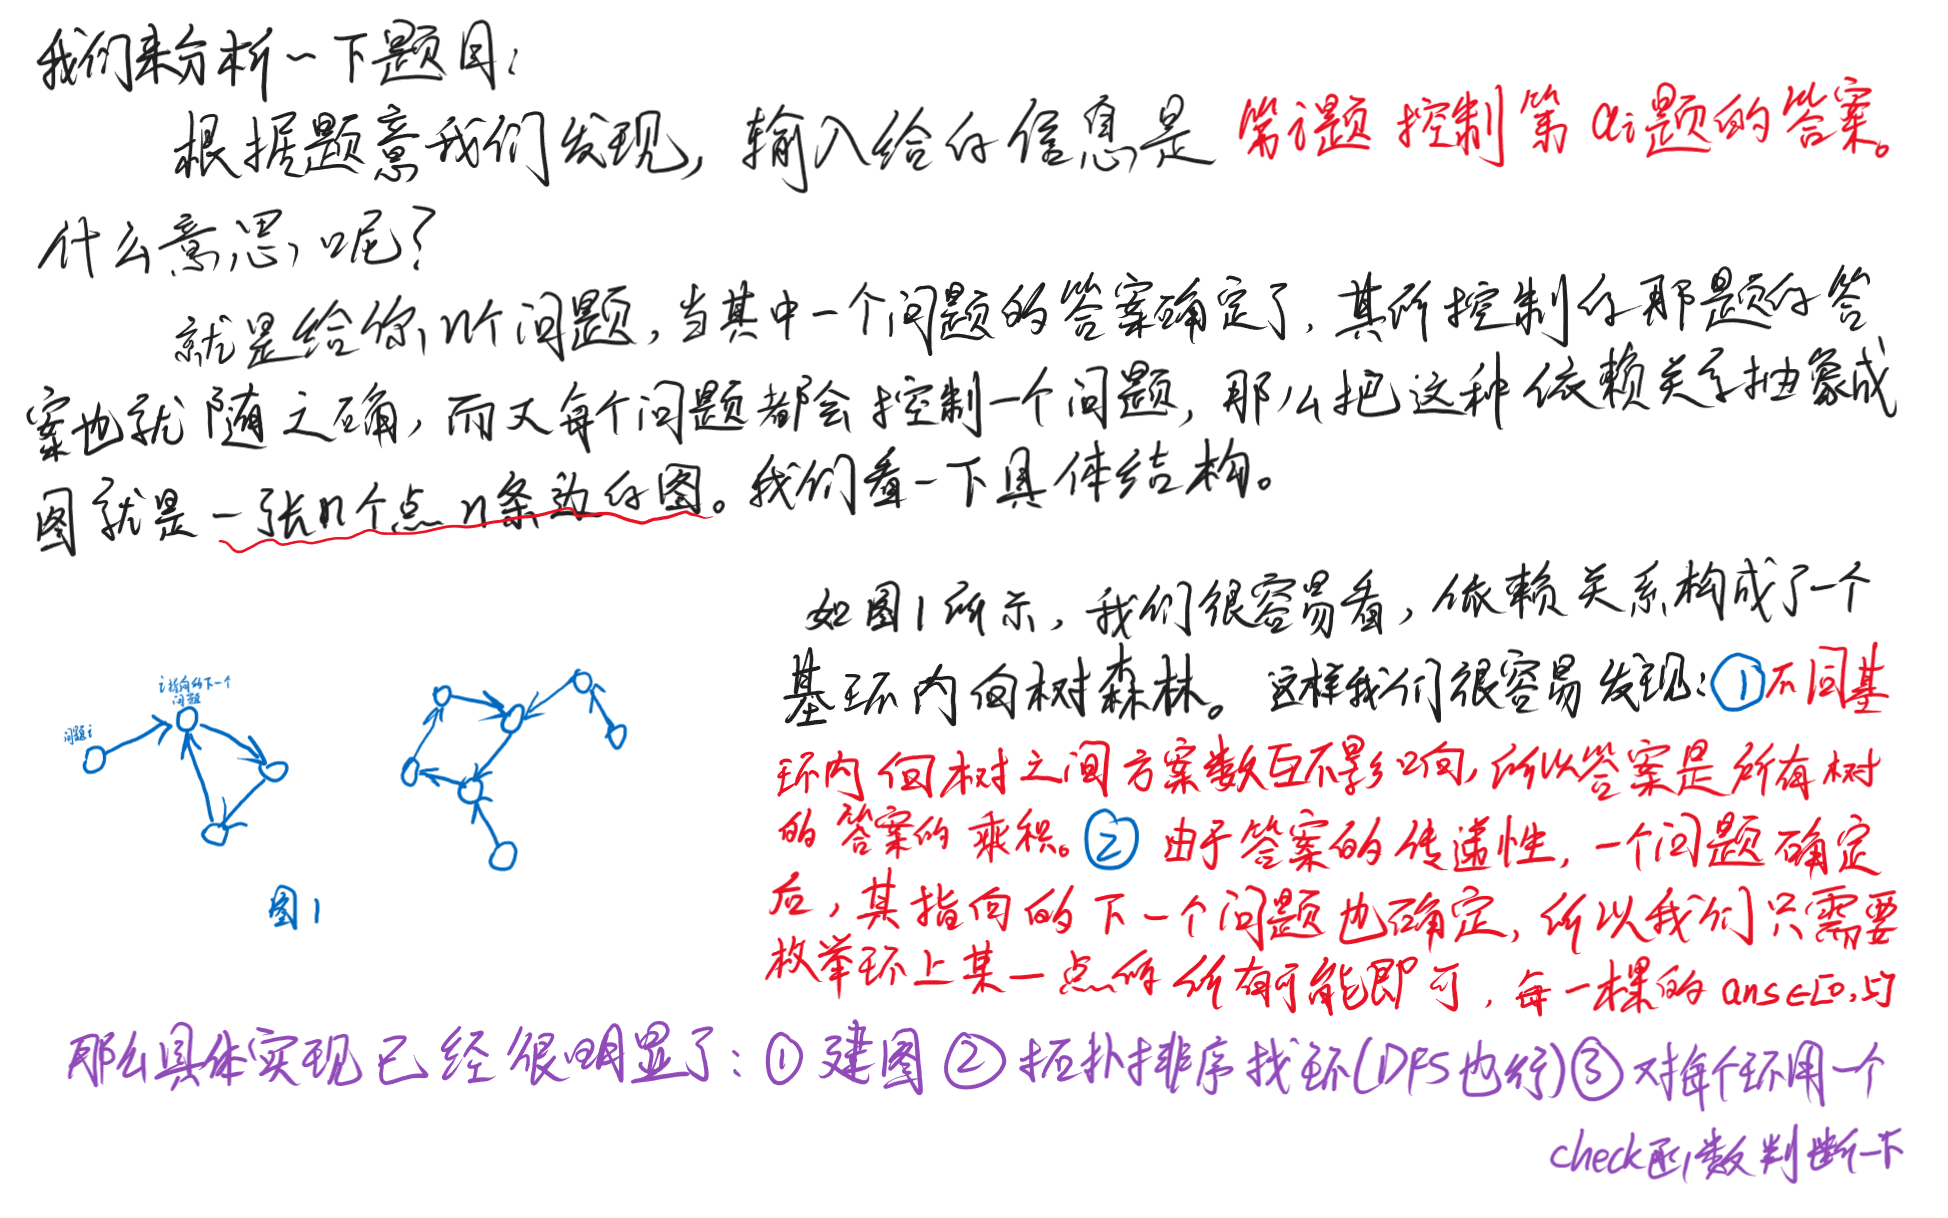 我们来分析一下题目:
根据题意我们发现, 输入给的信息是 第i题 控制第 ai题的答案。
什么意思呢?
就是给你n个问题,当其中一个问题的答案确定了,其所控制的那题的答
案也就随之确,而又每个问题都会控制一个问题,那么把这种依赖关系抽象成
图就是一张n个点n条边的图。我们看一下具体结构。
如图1所示,我们很容易看,依赖关系构成了一个
基环内向树森林。这样我们很容易发现:①不同基
环内向树之间方案数互不影响,所以答案是所有树
的答案的乘积。②由于答案的传递性,一个问题确定
后,其指向的下一个问题也确定,所以我们只需要
枚举环上某一点的所有可能即可,每一棵的ans∈[0,5]
i指向的下一个
问题
问题i
图1
那么具体实现已经很明显了:①建图②拓扑排序找环(DFS也行)③对每个环用一个
check函数判断一下